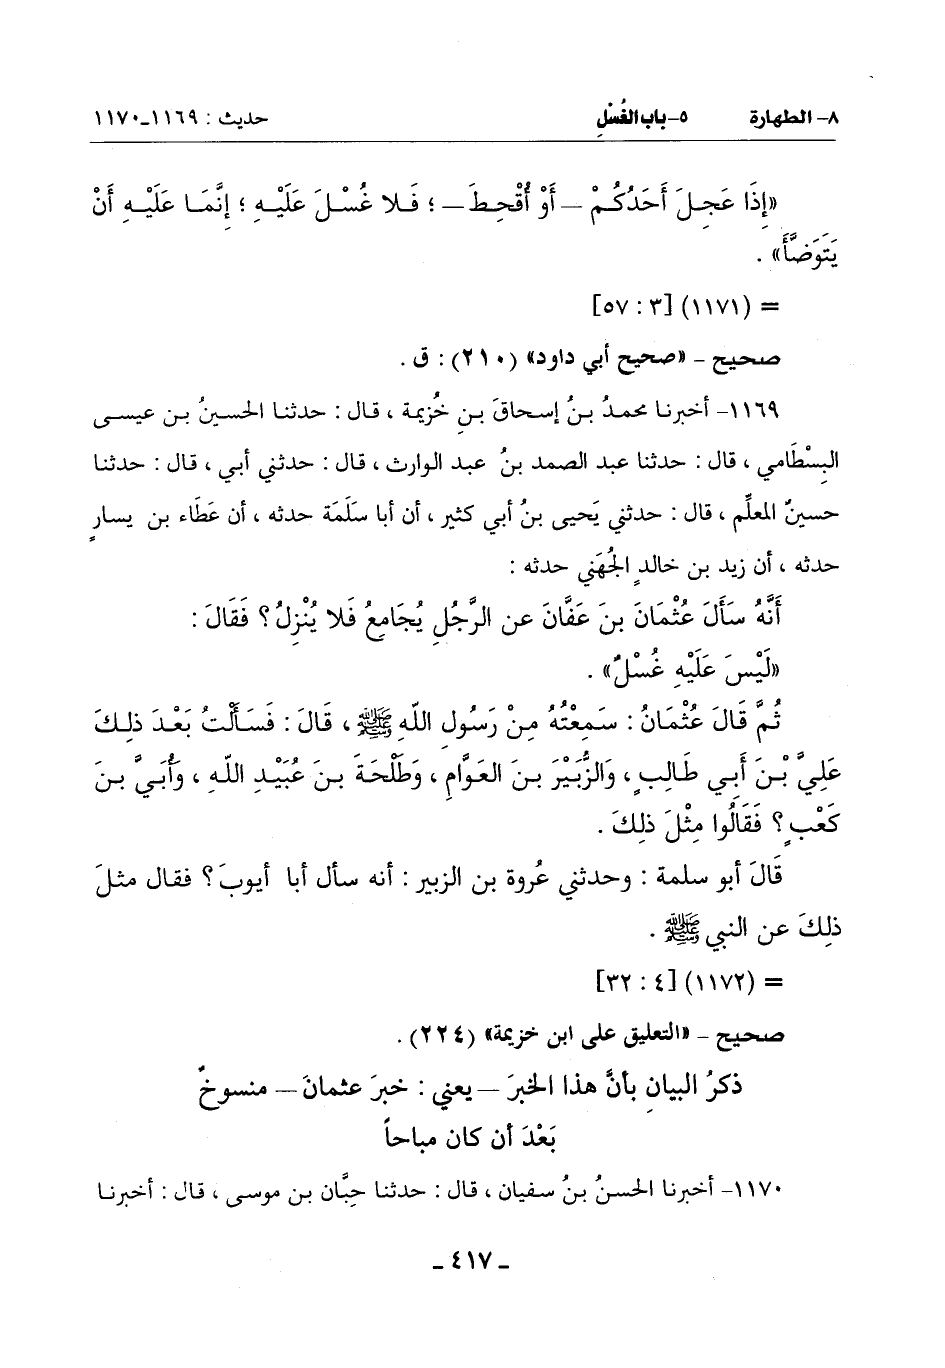 ٨- الطهارة ٥- باب الغُسْلِ حديث : ١١٦٩-١١٧٠
«إِذَا عَجِلَ أَحَدُكُمْ – أَوْ أُقْحِطَ – ؛ فَلا غُسْلَ عَلَيْهِ ؛ إِنَّمَا عَلَيْهِ أَنْ
يَتَوَضَّأَ» .
= (١١٧١) [٣ : ٥٧]
صحيح - «صحيح أبي داود» (٢١٠) : ق .
١١٦٩- أخبرنا محمدُ بنُ إسحاقَ بنِ خُزيمة ، قال : حدثنا الحسينُ بن عيسى
البِسْطَامي ، قال : حدثنا عبد الصمد بنُ عبد الوارث ، قال : حدثني أبي ، قال : حدثنا
حسينٌ المعلِّم ، قال : حدثني يَحيى بنُ أبي كثير ، أن أبا سَلَمَة حدثه ، أن عَطَاء بن يسارٍ
حدثه ، أن زيد بن خالدٍ الجُهَني حدثه :
أَنَّهُ سَأَلَ عُثْمَانَ بنَ عَفَّانَ عن الرَّجُلِ يُجَامِعُ فَلا يُنْزِلُ ؟ فَقَالَ :
«لَيْسَ عَلَيْهِ غُسْلٌ» .
ثُمَّ قَالَ عُثْمَانُ : سَمِعْتُهُ مِنْ رَسُولِ اللَّهِ ﷺ ، قَالَ : فَسَأَلْتُ بَعْدَ ذلِكَ
عَلِيَّ بْنَ أَبِي طَالِبٍ ، وَالزُّبَيْرَ بنَ العَوَّامِ ، وَطَلْحَةَ بنَ عُبَيْدِ اللَّهِ ، وَأُبَيَّ بنَ
كَعْبٍ ؟ فَقَالُوا مِثْلَ ذلِكَ .
قَالَ أبو سلمة : وحدثني عُروة بن الزبير : أنه سأل أبا أيوبَ ؟ فقال مثلَ
ذلِكَ عن النبي ﷺ .
= (١١٧٢) [٤ : ٣٢]
صحيح - «التعليق على ابن خزيمة» (٢٢٤) .
ذكرُ البيانِ بأنَّ هذا الخبرَ – يعني : خبرَ عثمانَ – منسوخٌ
بَعْدَ أن كان مباحاً
١١٧٠- أخبرنا الحسنُ بنُ سفيان ، قال : حدثنا حِبَّان بن موسى ، قال : أخبرنا
- ٤١٧ -